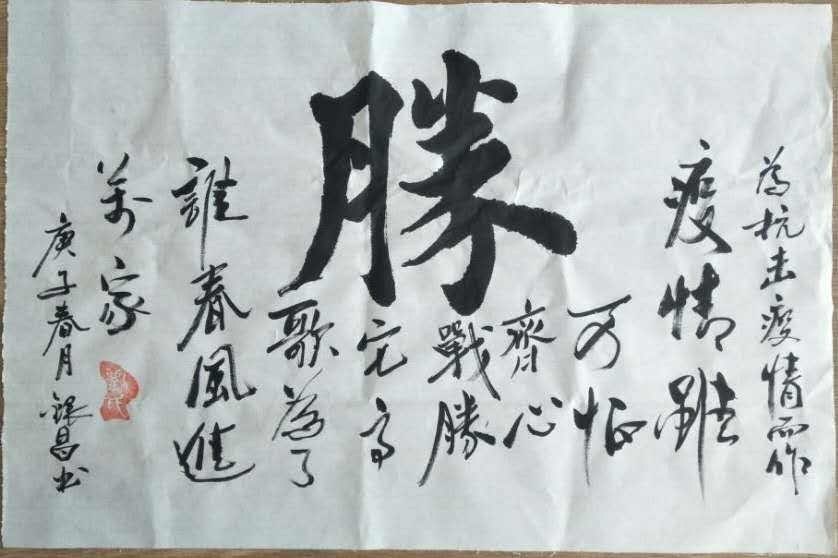 勝
為抗击疫情而作
疫情雖
可怕
齊心
戰勝
它高
歌為了
誰春風進
萬家
庚子春月銀昌书